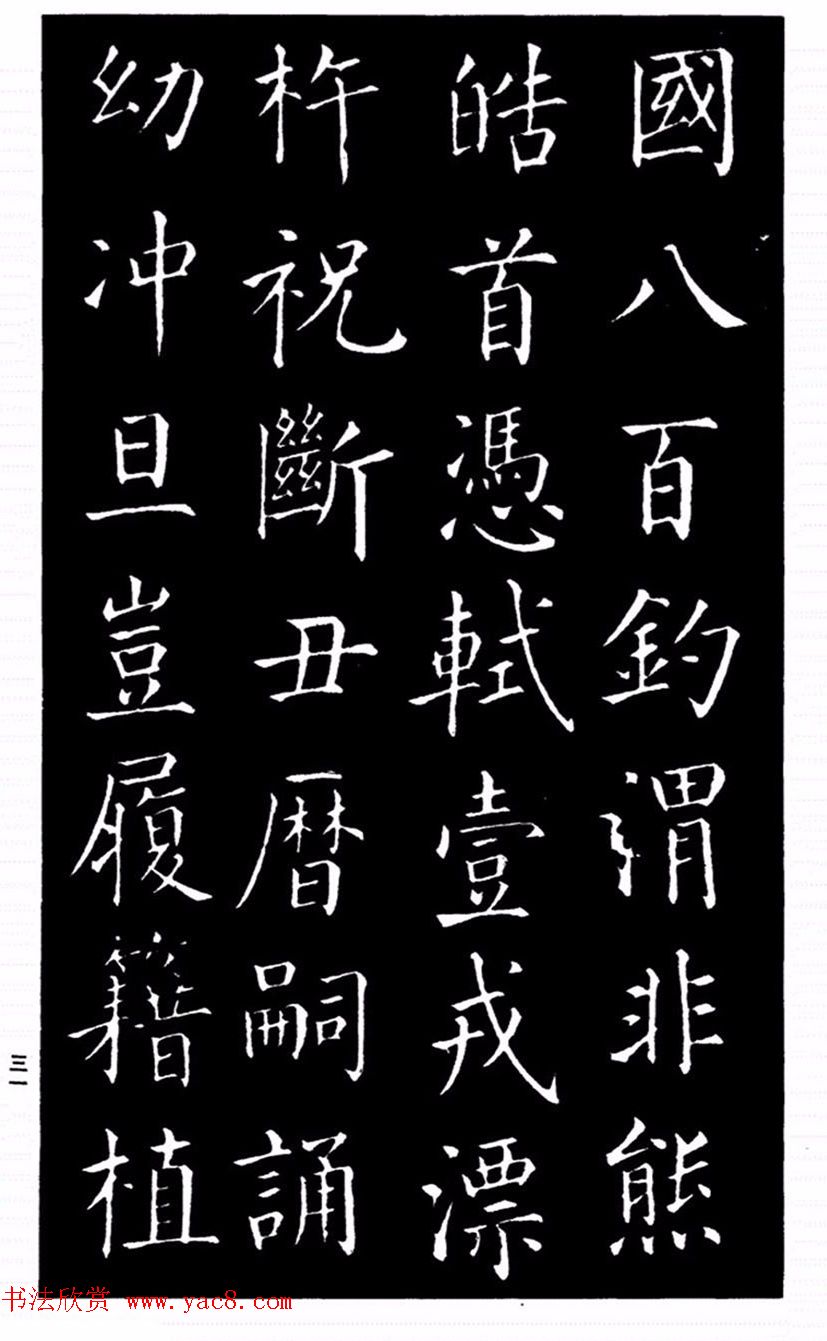 國八百釣渭非熊
皓首憑軾壹戎漂
杵祝斷丑曆嗣誦
幼冲旦豈履籍植
三一
书法欣赏 www.yac8.com